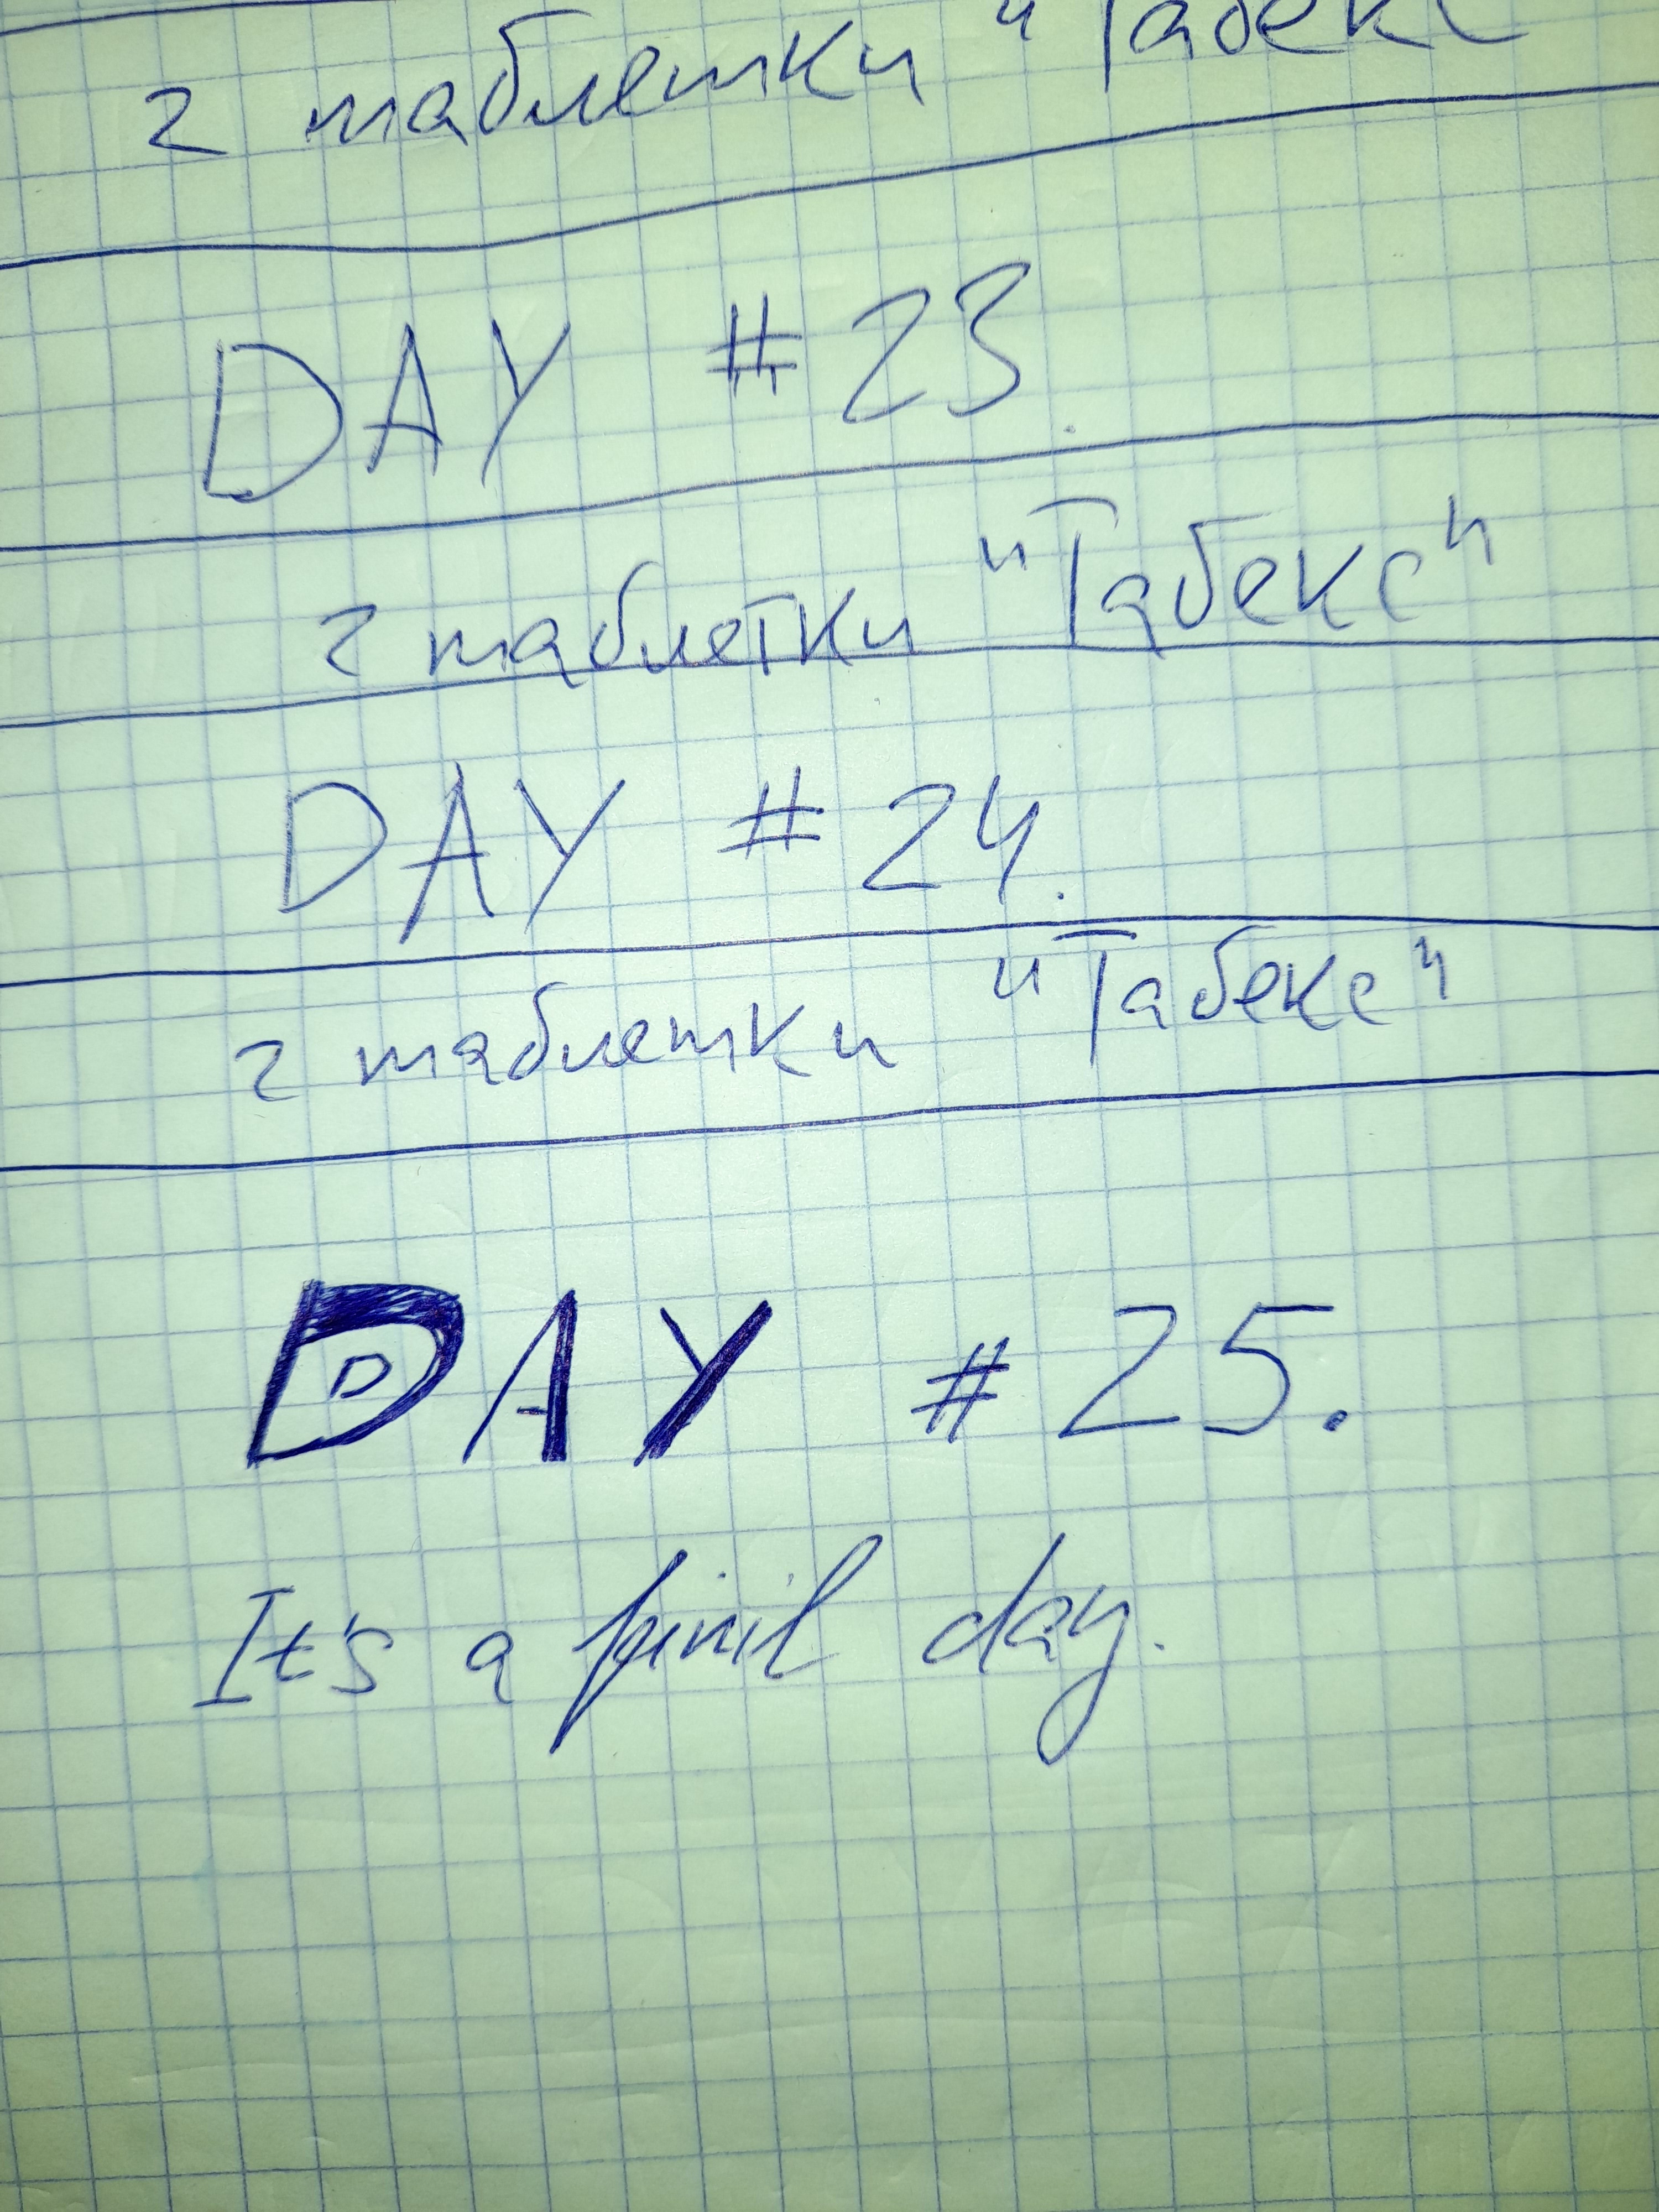 2 таблетки "Табекс
DAY #23.
2 таблетки "Табекс"
DAY #24.
2 таблетки "Табекс"
DAY #25.
It's a finil day.